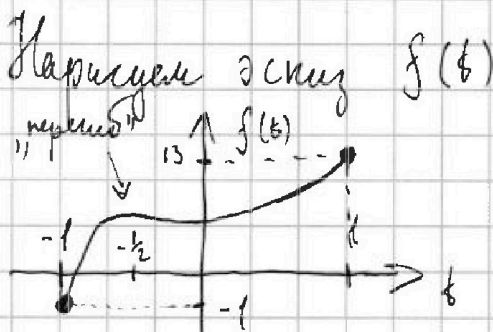 Нарисуем эскиз f(t)
„перегиб"
f(t)
13
-1
-1/2
1
t
-1